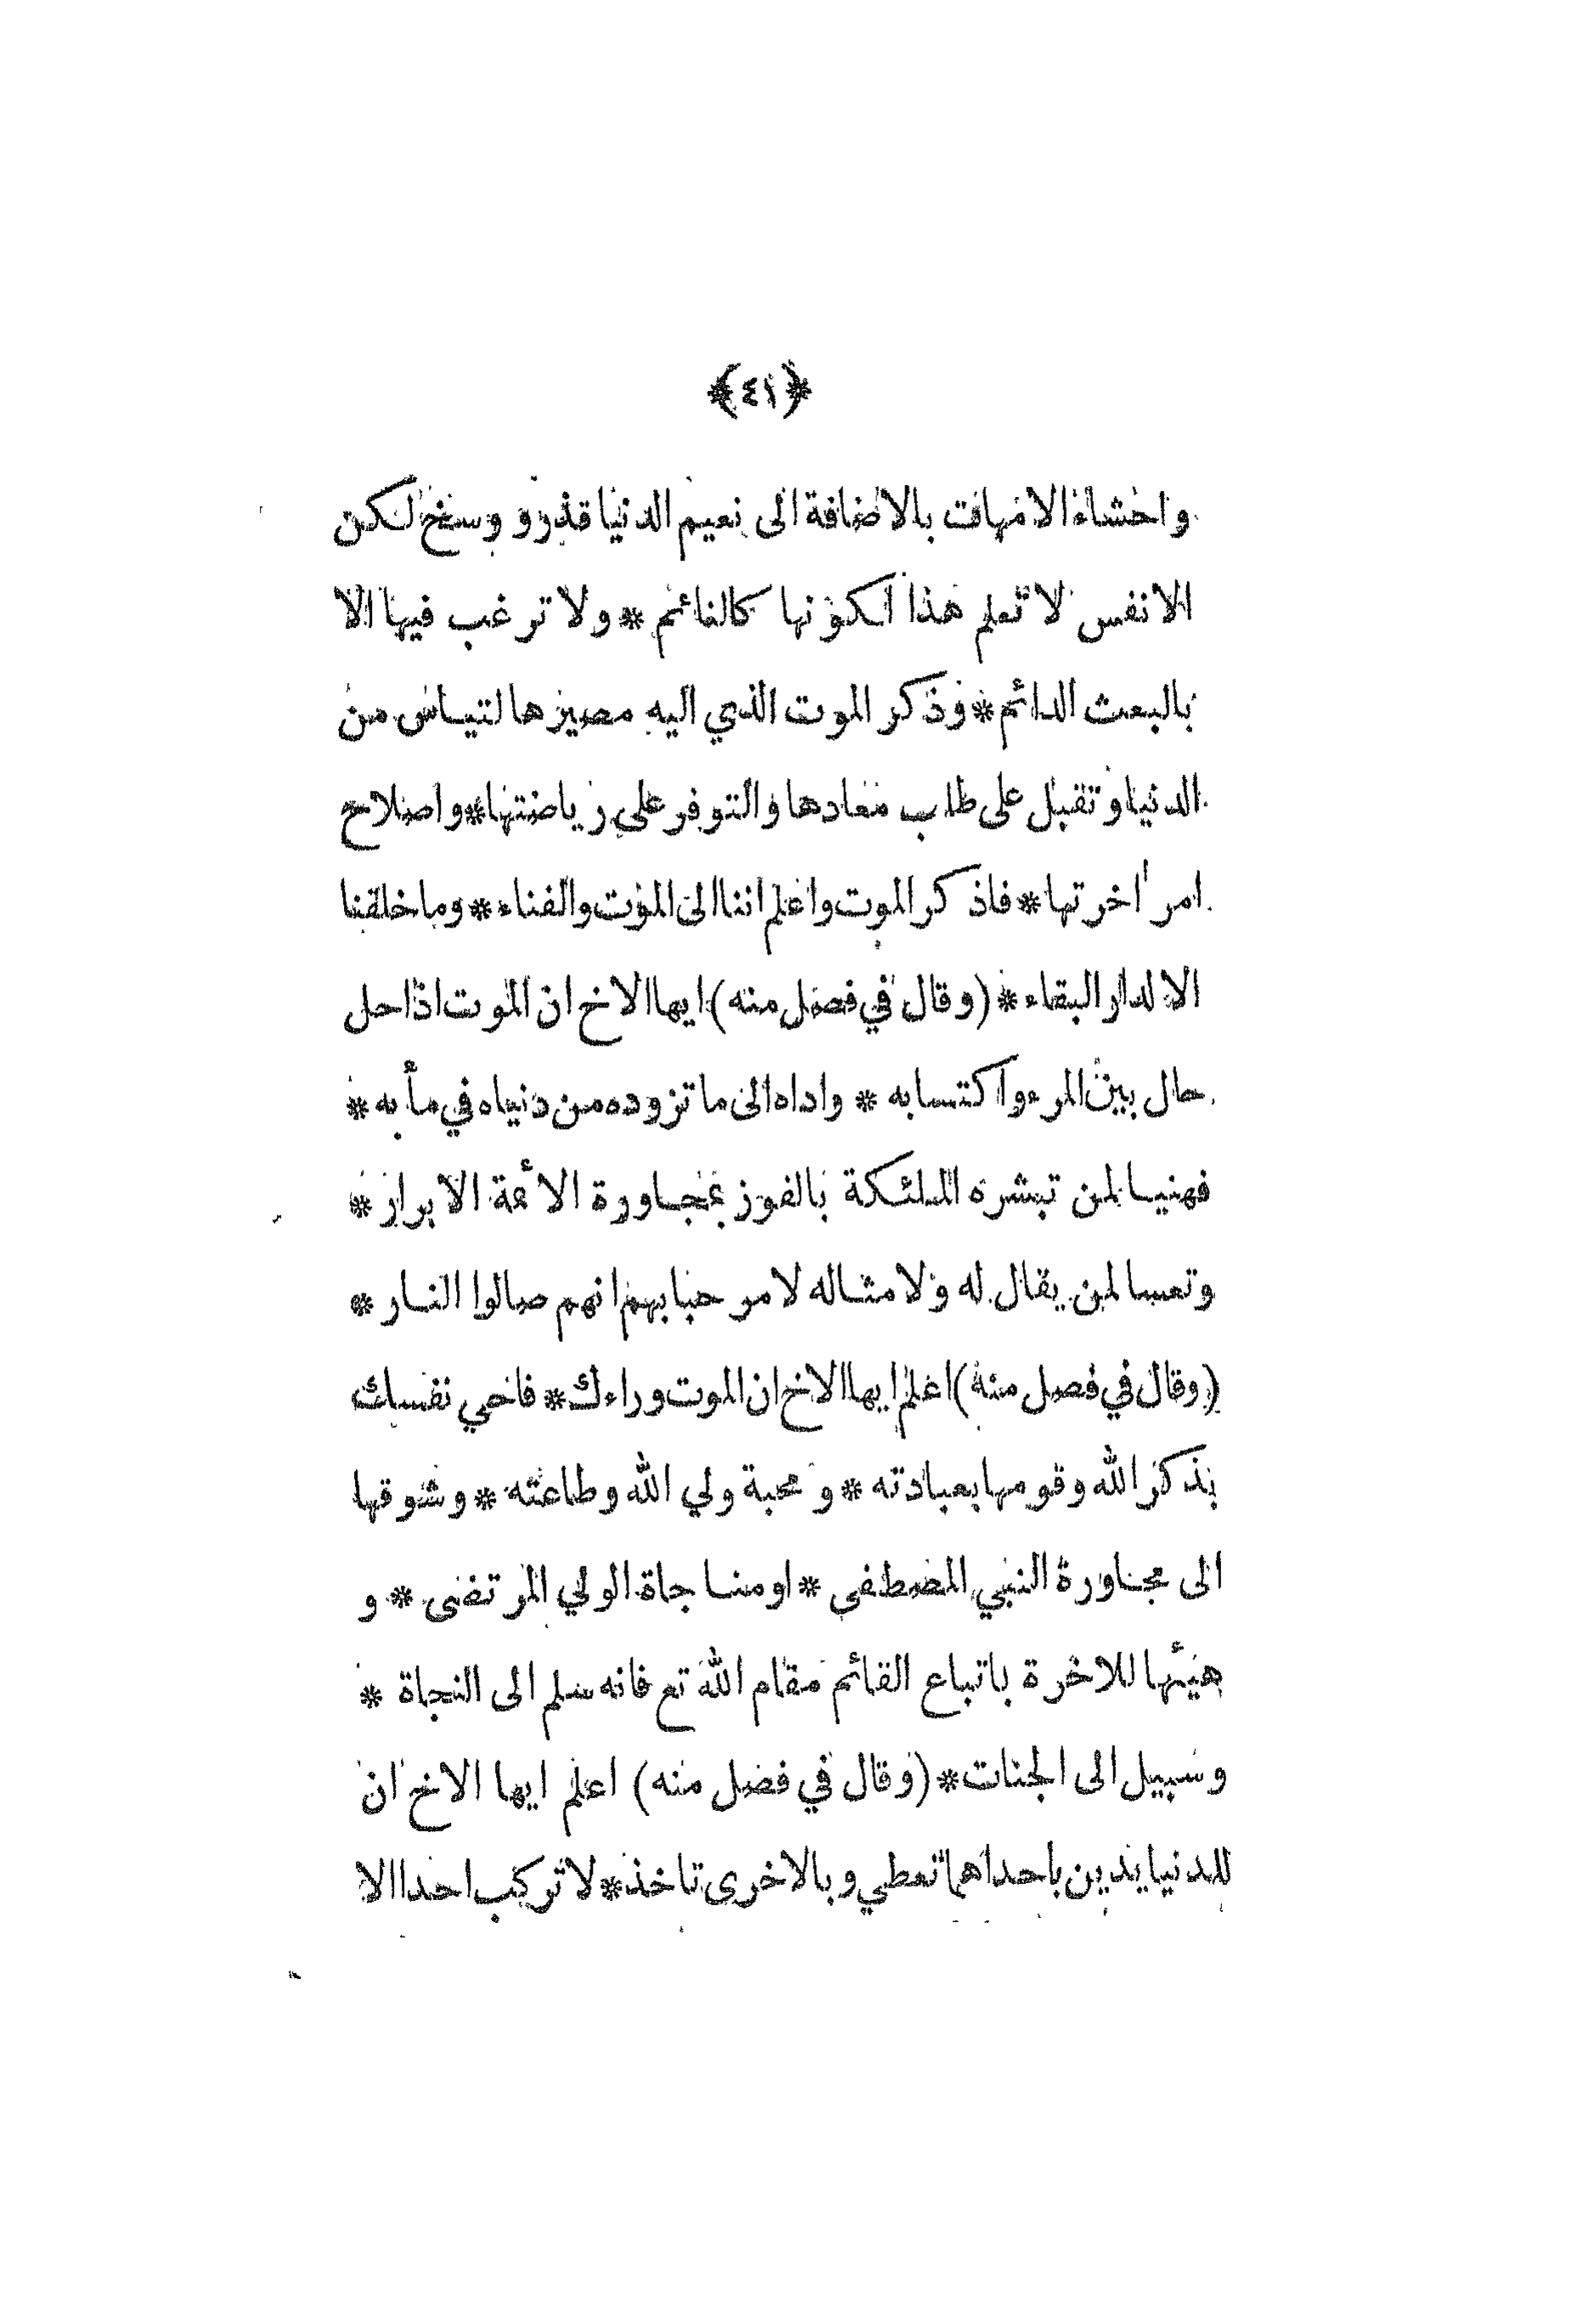 ﴿٤١﴾
واحشاء الامهات بالاضافة الى نعيم الدنيا قذر و وسخ لكن
الانفس لا تعلم هذا لكونها كالنائم * ولا ترغب فيها الا
بالبعث الدائم * وذكر الموت الذي اليه مصيرها لتياس من
الدنيا وتقبل على طلب معادها والتوفر على رياضتها * واصلاح
امر اخرتها * فاذكر الموت واعلم اننا الى الموت والفناء * وما خلقنا
الا لدار البقاء * (وقال في فصل منه) ايها الاخ ان الموت اذا حل
حال بين المرء واكتسابه * واداه الى ما تزوده من دنياه في مأبه *
فهنيا لمن تبشره الملئكة بالفوز بمجاورة الأئمة الابرار *
وتعسا لمن يقال له ولامثاله لا مرحبا بهم انهم صالوا النار *
(وقال في فصل منه) اعلم ايها الاخ ان الموت وراءك * فاحي نفسك
بذكر الله وقومها بعبادته * و محبة ولي الله وطاعته * وشوقها
الى مجاورة النبي المصطفى * او مناجاة الولي المرتضى * و
هيئها للاخرة باتباع القائم مقام الله تع فانه سلم الى النجاة *
وسبيل الى الجنات * (وقال في فصل منه) اعلم ايها الاخ ان
للدنيا يدين باحداهما تعطي وبالاخرى تاخذ * لا تركب احدا الا